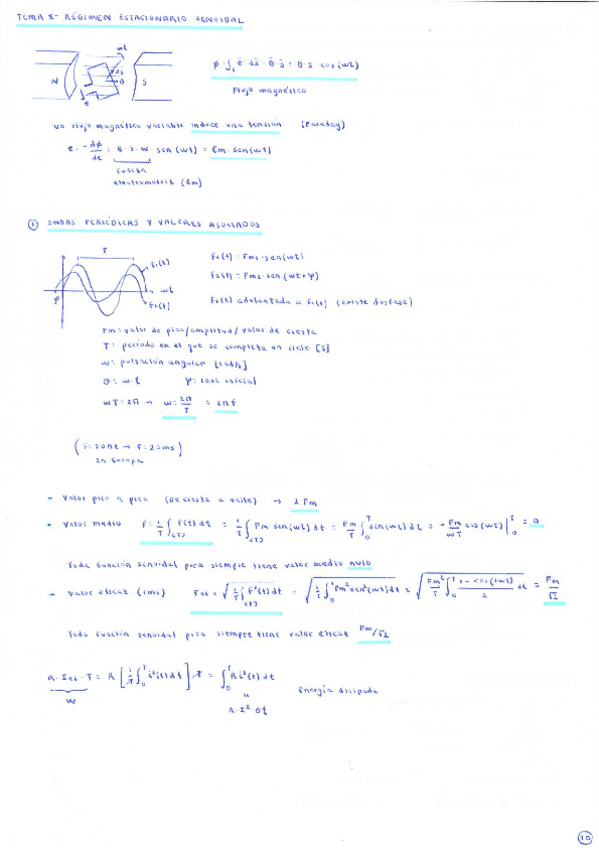 TEMA 5- RÉGIMEN ESTACIONARIO SENOIDAL
wt
N S
e
ϕ = ∫s B · ds = B · S · cos (wt)
Flujo magnético
Un flujo magnético variable induce una tensión (Faraday)
e = -dϕ/dt = B · S · w · sen (wt) = Em · sen(wt)
fuerza
electromotriz (Em)
① ONDAS PERIÓDICAS Y VALORES ASOCIADOS
T
F1(t)
wt
F2(t)
φ
F1(t) = Fm1 · sen(wt)
F2(t) = Fm2 · sen (wt+φ)
F2(t) adelantada a F1(t) (existe desfase)
Fm: valor de pico/amplitud/valor de cresta
T: período en el que se completa un ciclo [s]
w: pulsación angular [rad/s]
θ = w · t φ: fase inicial
wT = 2π → w = 2π/T = 2πf
(F = 50Hz → T = 20ms)
en Europa
- Valor pico a pico (de cresta a valle) → 2 Fm
- Valor medio F = 1/T ∫<T> F(t) dt = 1/T ∫<T> Fm sen(wt) dt = Fm/T ∫0T sen(wt) dt = - Fm/wT cos (wt) |0T = 0
Toda función senoidal pura siempre tiene valor medio nulo
- Valor eficaz (rms) Fef = √(1/T ∫<T> F²(t) dt) = √(1/T ∫0T Fm² sen²(wt) dt) = √(Fm²/T ∫0T (1 - cos (2wt))/2 dt) = Fm/√2
Toda función senoidal pura siempre tiene valor eficaz Fm/√2
R · I²ef · T = R [1/T ∫0T i²(t) dt] T = ∫0T R i²(t) dt Energía disipada
W
R · I² · Δt
10